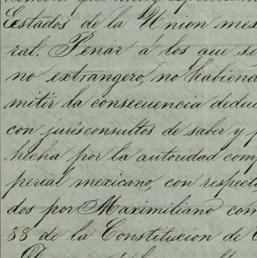 Estados de la Union mex
ral. Penar a los que so
no extrangero, no habiend
mitir la consecuencia deduc
con jurisconsultos de saber y p
hecha por la autoridad comp
perial mexicano, con respect
dos por Maximiliano com
33 de la Constitucion de